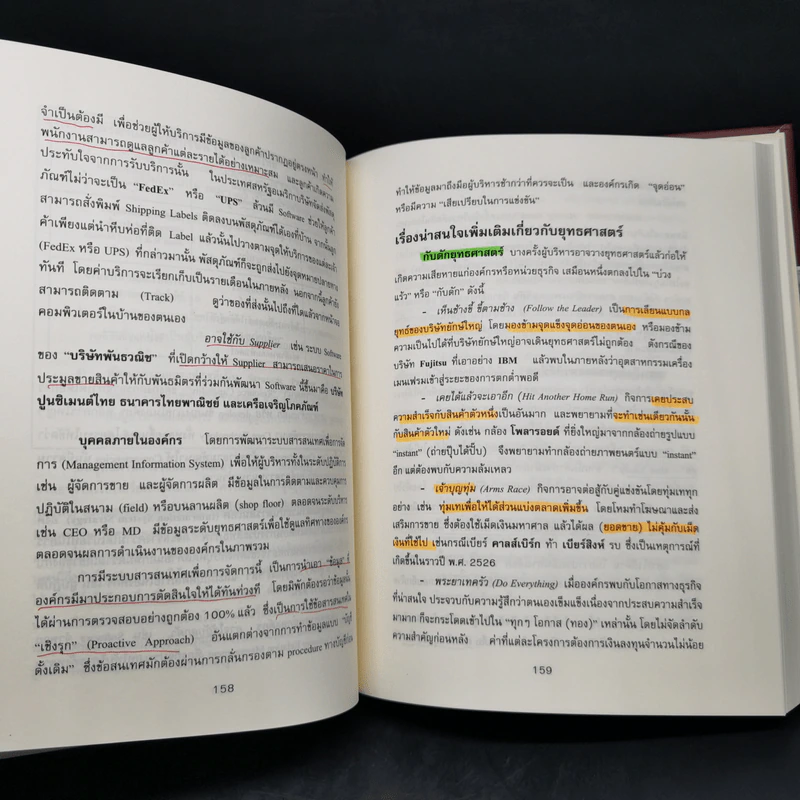 จำเป็นต้องมี เพื่อช่วยผู้ให้บริการมีข้อมูลของลูกค้าปรากฏอยู่ตรงหน้า ทำให้
พนักงานสามารถดูแลลูกค้าแต่ละรายได้อย่างเหมาะสม และลูกค้าเกิดความ
ประทับใจจากการรับบริการนั้น ในประเทศสหรัฐอเมริกาบริษัทจัดส่งพัสดุ
ภัณฑ์ไม่ว่าจะเป็น "FedEx" หรือ "UPS" ล้วนมี Software ช่วยให้ลูกค้า
สามารถสั่งพิมพ์ Shipping Labels ติดลงบนพัสดุภัณฑ์ได้เองที่บ้าน จากนั้นลูก
ค้าเพียงแต่นำหีบห่อที่ติด Label แล้วนั้นไปวางตามจุดให้บริการของแต่ละเจ้า
(FedEx หรือ UPS) ที่กล่าวมานั้น พัสดุภัณฑ์ก็จะถูกส่งไปยังจุดหมายปลายทาง
ทันที โดยค่าบริการจะเรียกเก็บเป็นรายเดือนในภายหลัง นอกจากนี้ลูกค้ายัง
สามารถติดตาม (Track) ดูว่าของที่ส่งนั้นไปถึงที่ใดแล้วจากหน้าจอ
คอมพิวเตอร์ในบ้านของตนเอง
อาจใช้กับ Supplier เช่น ระบบ Software
ของ "บริษัทพันธวณิช" ที่เปิดกว้างให้ Supplier สามารถเสนอราคาในการ
ประมูลขายสินค้าให้กับพันธมิตรที่ร่วมกันพัฒนา Software นี้ขึ้นมาคือ บริษัท
ปูนซิเมนต์ไทย ธนาคารไทยพาณิชย์ และเครือเจริญโภคภัณฑ์
บุคคลภายในองค์กร โดยการพัฒนาระบบสารสนเทศเพื่อการจัด
การ (Management Information System) เพื่อให้ผู้บริหารทั้งในระดับปฏิบัติการ
เช่น ผู้จัดการขาย และผู้จัดการผลิต มีข้อมูลในการติดตามและควบคุมการ
ปฏิบัติในสนาม (field) หรือบนลานผลิต (shop floor) ตลอดจนระดับบริหาร
เช่น CEO หรือ MD มีข้อมูลระดับยุทธศาสตร์เพื่อใช้ดูแลทิศทางขององค์กร
ตลอดจนผลการดำเนินงานขององค์กรในภาพรวม
การมีระบบสารสนเทศเพื่อการจัดการนี้ เป็นการนำเอา "ข้อมูล" ที่
องค์กรมีมาประกอบการตัดสินใจให้ได้ทันท่วงที โดยมิพักต้องรอว่าข้อมูลนั้น
ได้ผ่านการตรวจสอบอย่างถูกต้อง 100% แล้ว ซึ่งเป็นการใช้ข้อสารสนเทศใน
"เชิงรุก" (Proactive Approach) อันแตกต่างจากการทำข้อมูลแบบ "บัญชี
ดั้งเดิม" ซึ่งข้อสนเทศมักต้องผ่านการกลั่นกรองตาม procedure ทางบัญชีก่อน
158
ทำให้ข้อมูลมาถึงมือผู้บริหารช้ากว่าที่ควรจะเป็น และองค์กรเกิด "จุดอ่อน"
หรือมีความ "เสียเปรียบในการแข่งขัน"
เรื่องน่าสนใจเพิ่มเติมเกี่ยวกับยุทธศาสตร์
กับดักยุทธศาสตร์ บางครั้งผู้บริหารอาจวางยุทธศาสตร์แล้วก่อให้
เกิดความเสียหายแก่องค์กรหรือหน่วยธุรกิจ เสมือนหนึ่งตกลงไปใน "บ่วง
แร้ว" หรือ "กับดัก" ดังนี้
- เห็นช้างขี้ ขี้ตามช้าง (Follow the Leader) เป็นการเลียนแบบกล
ยุทธ์ของบริษัทยักษ์ใหญ่ โดยมองข้ามจุดแข็งจุดอ่อนของตนเอง หรือมองข้าม
ความเป็นไปได้ที่บริษัทยักษ์ใหญ่อาจเดินยุทธศาสตร์ไม่ถูกต้อง ดังกรณีของ
บริษัท Fujitsu ที่เอาอย่าง IBM แล้วพบในภายหลังว่าอุตสาหกรรมเครื่อง
เมนเฟรมเข้าสู่ระยะของการตกต่ำพอดี
- เคยได้แล้วจะเอาอีก (Hit Another Home Run) กิจการเคยประสบ
ความสำเร็จกับสินค้าตัวหนึ่งเป็นอันมาก และพยายามที่จะทำเช่นเดียวกันนั้น
กับสินค้าตัวใหม่ ดังเช่น กล้อง โพลารอยด์ ที่ยิ่งใหญ่มาจากกล้องถ่ายรูปแบบ
"instant" (ถ่ายปุ๊บได้ปั๊บ) จึงพยายามทำกล้องถ่ายภาพยนตร์แบบ "instant"
อีก แต่ต้องพบกับความล้มเหลว
- เจ้าบุญทุ่ม (Arms Race) กิจการอาจต่อสู้กับคู่แข่งขันโดยทุ่มเททุก
อย่าง เช่น ทุ่มเทเพื่อให้ได้ส่วนแบ่งตลาดเพิ่มขึ้น โดยโหมทำโฆษณาและส่ง
เสริมการขาย ซึ่งต้องใช้เม็ดเงินมหาศาล แล้วได้ผล (ยอดขาย) ไม่คุ้มกับเม็ด
เงินที่ใช้ไป เช่นกรณีเบียร์ คาลส์เบิร์ก ท้า เบียร์สิงห์ รบ ซึ่งเป็นเหตุการณ์ที่
เกิดขึ้นในราวปี พ.ศ. 2526
- พระยาเทครัว (Do Everything) เมื่อองค์กรพบกับโอกาสทางธุรกิจ
ที่น่าสนใจ ประจวบกับความรู้สึกว่าตนเองเข้มแข็งเนื่องจากประสบความสำเร็จ
มามาก ก็จะกระโดดเข้าไปใน "ทุกๆ โอกาส (ทอง)" เหล่านั้น โดยไม่จัดลำดับ
ความสำคัญก่อนหลัง ค่าที่แต่ละโครงการต้องการเงินลงทุนจำนวนไม่น้อย
159